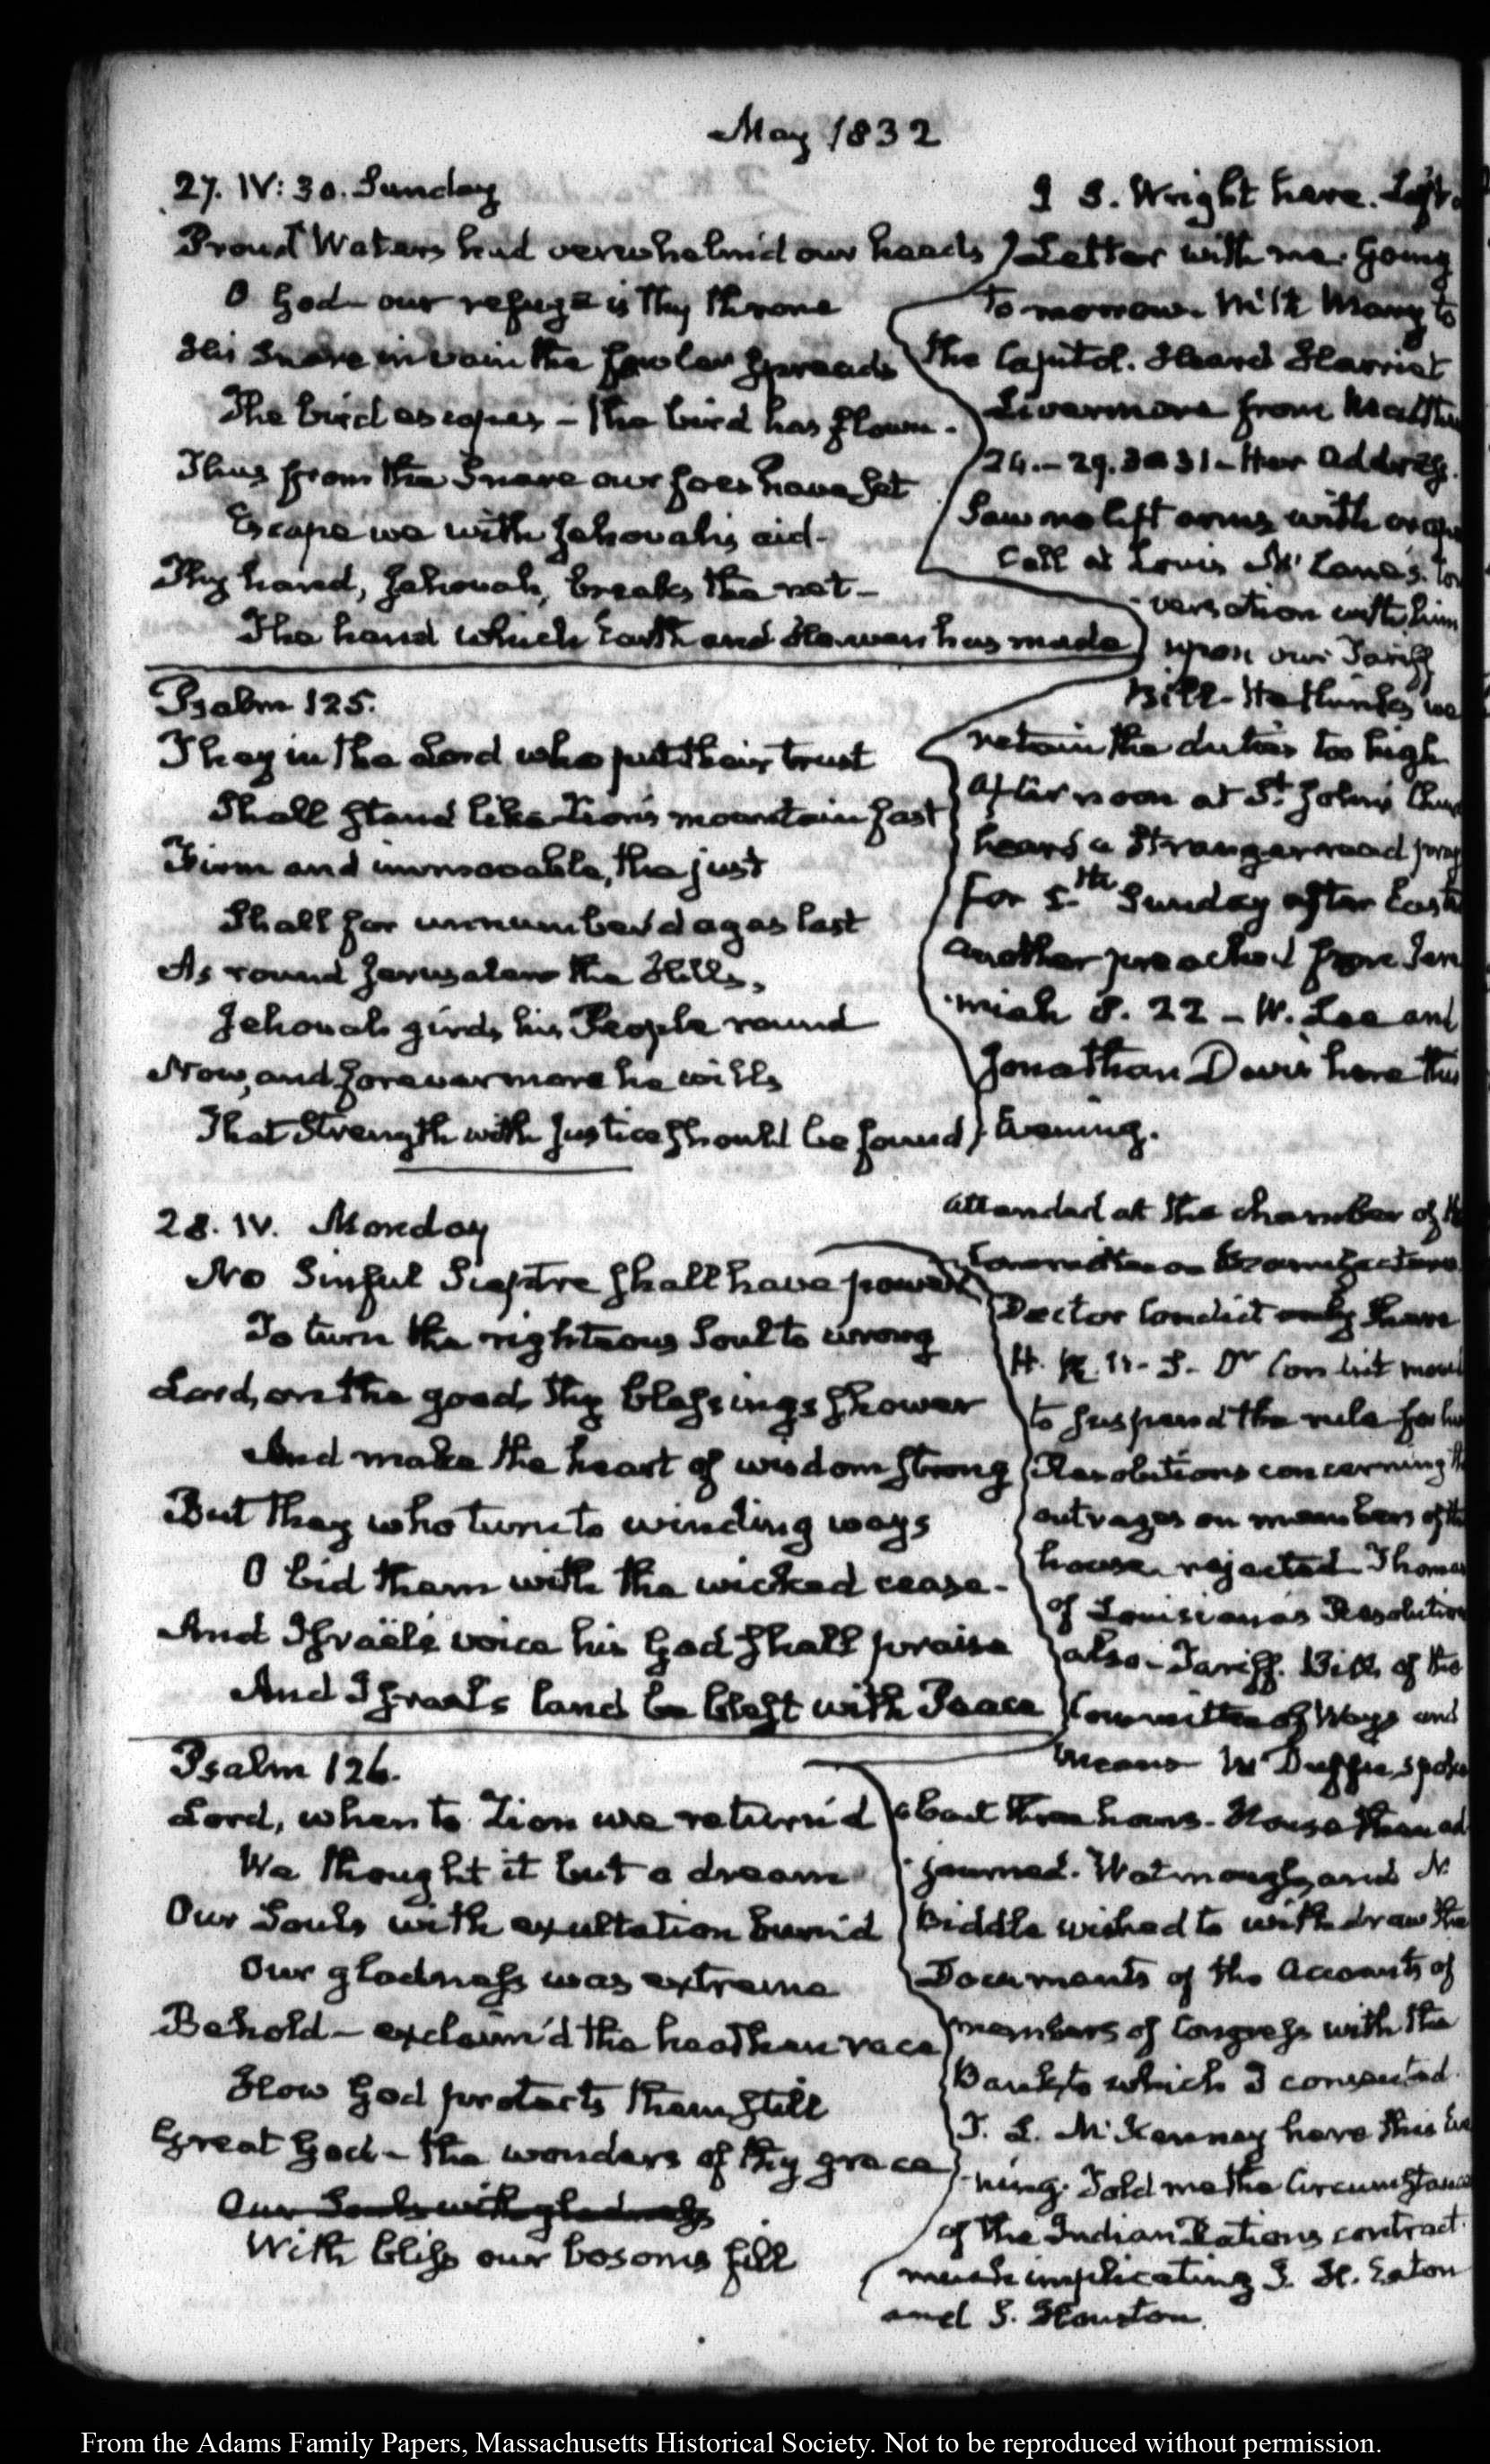 May 1832
27. IV: 30. Sunday
Proud Waters had overwhelm'd our heads
O God— our refuge is thy throne
His Snare in vain the fowler spreads
The bird escapes — the bird has flown.
Thus from the Snare our foes have set
Escape we with Jehovah's aid—
Thy hand, Jehovah, breaks the net—
The hand which Earth and Heaven has made
S. Wright here. Left
Letter with me. Going
to morrow. With Mary to
the Capitol. Heard Harriet
Livermore from Matthew
24.—29.30.31—Her Address.
Saw no lift arms with
Call at Louis McLane's. Con
versation with him
upon our Tariff
Bill—He thinks we
retain the duties too high
Afternoon at St. John's
heard a Stranger read
for 5th Sunday after
another preached from Jere
miah 8. 22 — W. Lee and
Jonathan Davis here this
Evening.
Psalm 125.
They in the Lord who put their trust
Shall stand like Zion's mountain fast
Firm and immoveable, the just
Shall for unnumber'd ages last
As round Jerusalem the Hills,
Jehovah girds his People round
Now, and forevermore he wills
That Strength with Justice should be found
28. IV. Monday
No Sinful Sceptre shall have power
To turn the righteous Soul to wrong
Lord, on the good thy blessings shower
And make the heart of wisdom strong
But they who turn to winding ways
O bid them with the wicked cease—
And Israël's voice his God shall praise
And Israel's land be blest with Peace
Attended at the chamber of the
Committee on Manufactures
Doctor Condict only there
H. R. U.S. Dr Condict moved
to suspend the rule for his
Resolutions concerning the
outrages on members of the
house rejected Thomas
of Louisiana's Resolution
also—Tariff. Bill of the
Committee of Ways and
Means McDuffie spoke
about three hours. House then ad
journed. Watmough and N.
Biddle wished to withdraw the
Documents of the Accounts of
members of Congress with the
Bank to which I consented.
T. L. McKenney here this Eve
ning. Told me the Circumstances
of the Indian Rations contract
much implicating J. H. Eaton
and S. Houston.
Psalm 126.
Lord, when to Zion we return'd
We thought it but a dream
Our Souls with exultation burn'd
Our gladness was extreme
Behold— exclaim'd the heathen race
How God protects them still
Great God— the wonders of thy grace
Our Souls with gladness
With bliss our bosoms fill
From the Adams Family Papers, Massachusetts Historical Society. Not to be reproduced without permission.